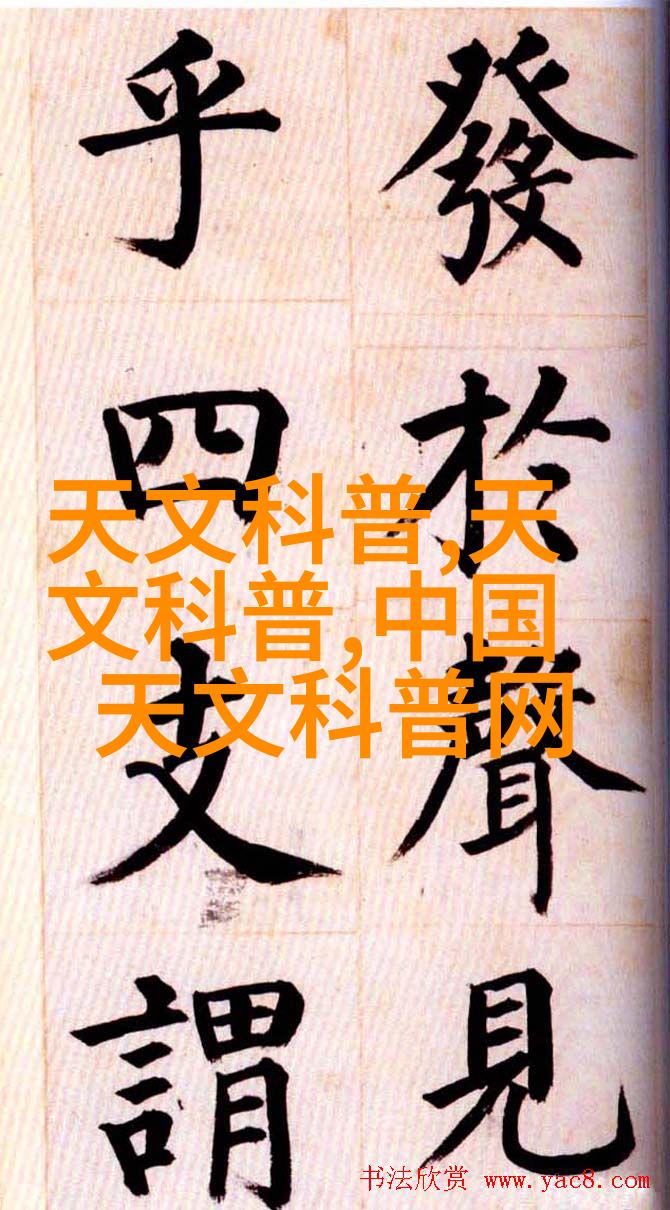 發於聲見
乎四支謂
天文科普,天
文科普,中国
天文科普网
书法欣赏 www.yac8.com